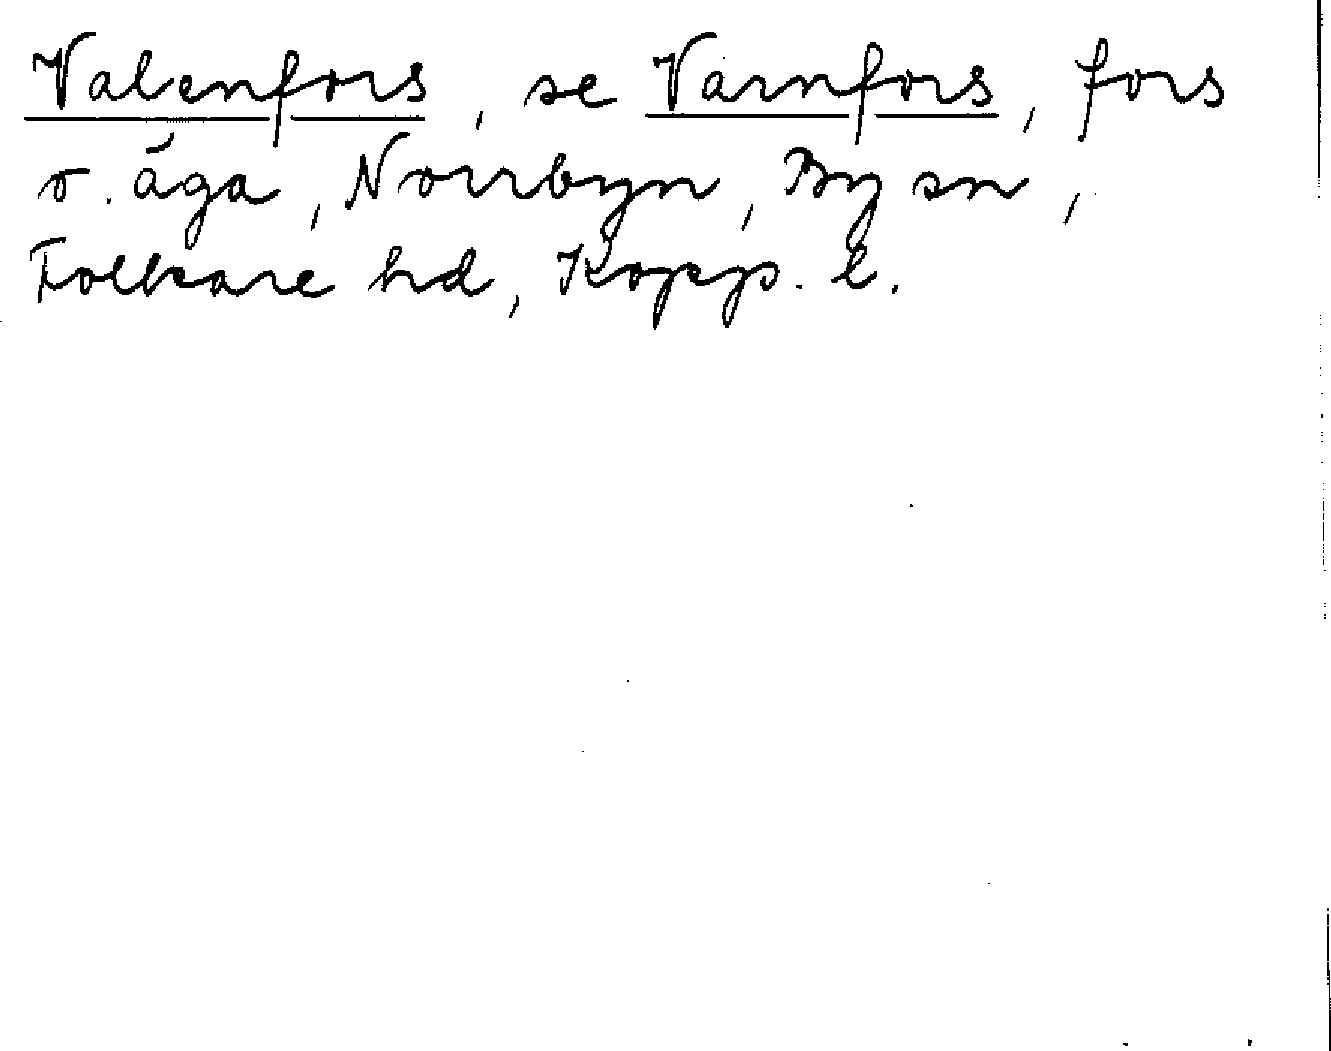 Valenfors, se Varnfors, fors
o. äga, Norrbyn, By sn,
Folkare hd, Kopp. l.